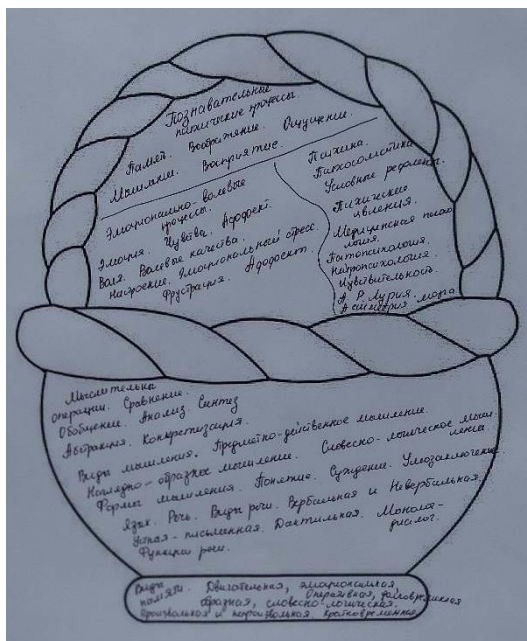 Познавательные
психические процессы
Память. Воображение. Ощущение.
Мышление. Восприятие.
Эмоционально-волевые
процессы.
Эмоция. Чувства. Аффект.
Воля. Волевые качества.
Настроение. Эмоциональный стресс.
Фрустрация. Аффект.
Психика.
Психосоматика
Условные рефлексы.
Психические
явления.
Медицинская психо
логия.
Патопсихология.
Нейропсихология.
Чувствительность.
А. Р. Лурия.
Асимметрия мозга
Мыслительны
операции. Сравнение.
Обобщение. Анализ. Синтиз
Абстракция. Конкретизация.
Виды мышления. Предметно-действенное мышление.
Наглядно-образное мышление. Словесно-логическое мыш
ление
Формы мышления. Понятие. Суждение. Умозаключение
Язык. Речь. Виды речи. Вербальная и Невербальная.
Устная-письменная. Дактильная. Монолог-
диалог.
Функции речи.
Виды
памяти. Двигательная, эмоциональная,
Оперативная, долговременная
образная, словесно-логическая.
Произвольная и непроизвольная. Кратковременная